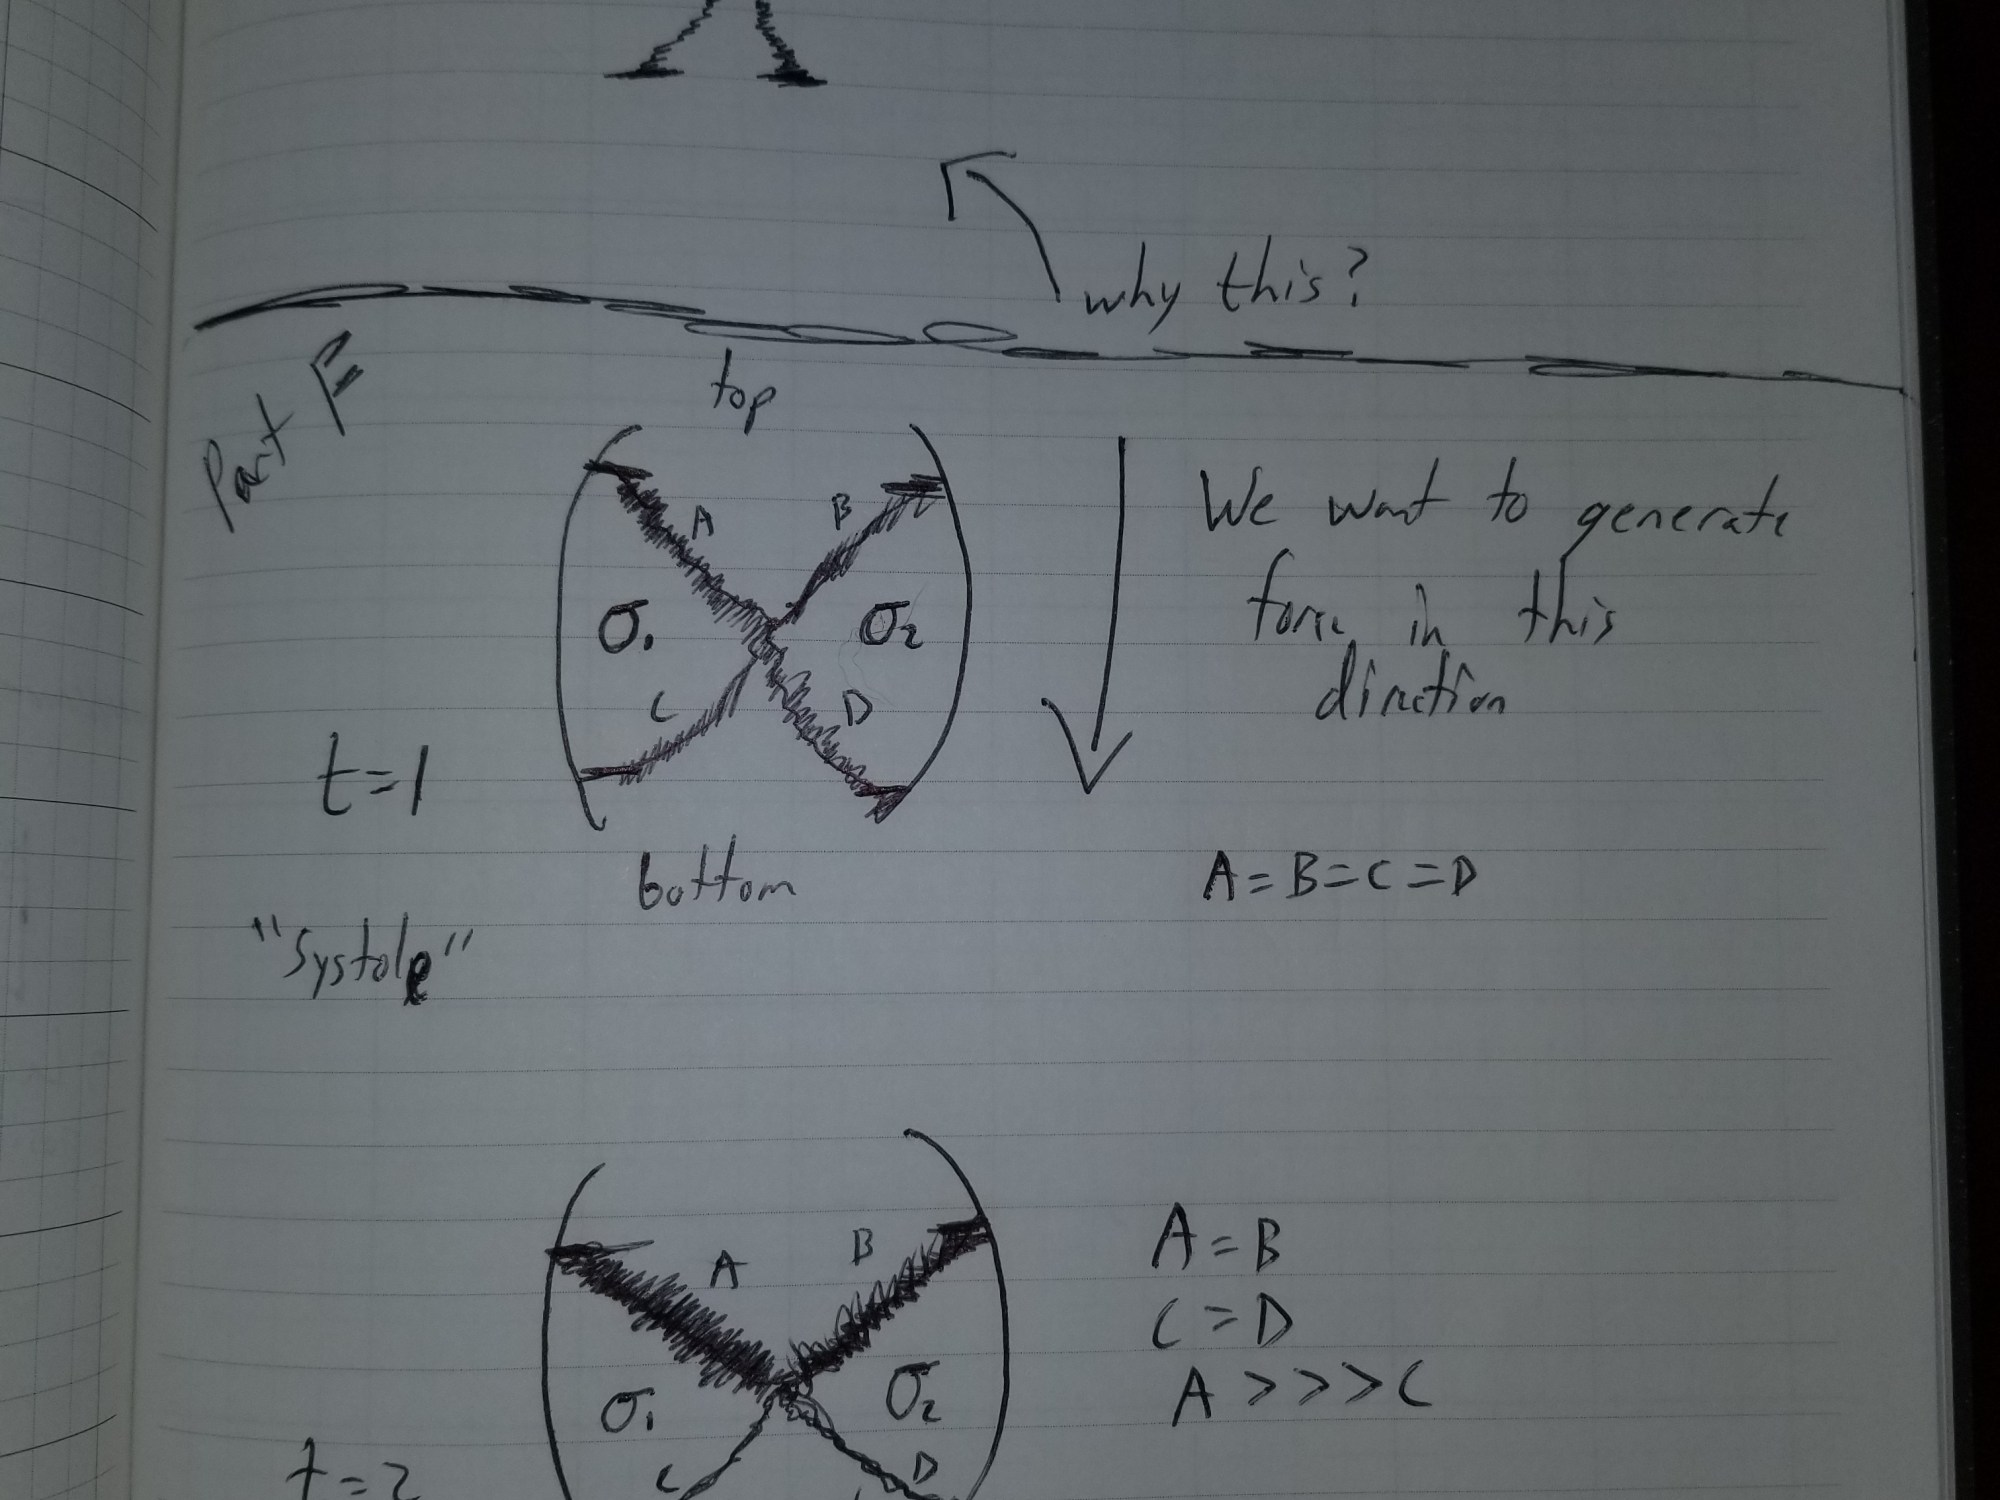 why this?
Part F
top
We want to generate
force in this
direction
A B
σ₁ σ₂
C D
t=1
bottom
A=B=C=D
"Systole"
A B
A=B
C=D
A>>>C
σ₁ σ₂
C D
t=2